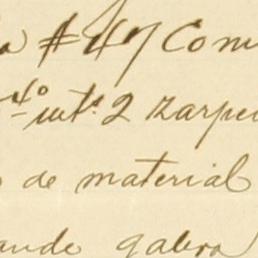 a # 47 Con
4º int.s 2 zarpe
de material
ande galera